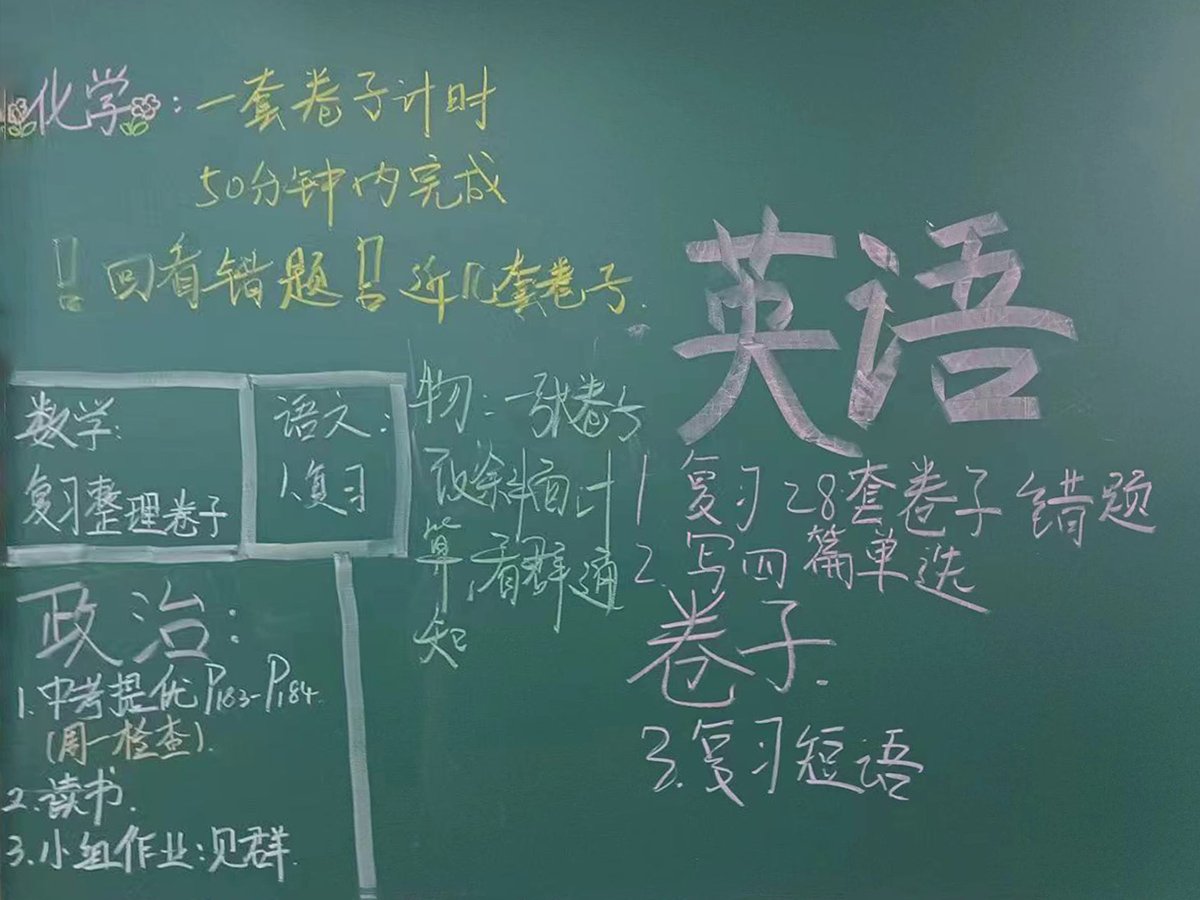 化学：一套卷子计时
50分钟内完成
！回看错题！！近几套卷子.
数学：
复习整理卷子
语文：
1.复习
物：一张卷子
取涂斜面计
算,看群通
知
政治：
1.中考提优P183-P184.
(周一检查).
2.读书.
3.小组作业：见群.
英语
1 复习28套卷子错题
2.写四篇单选
卷子.
3.复习短语